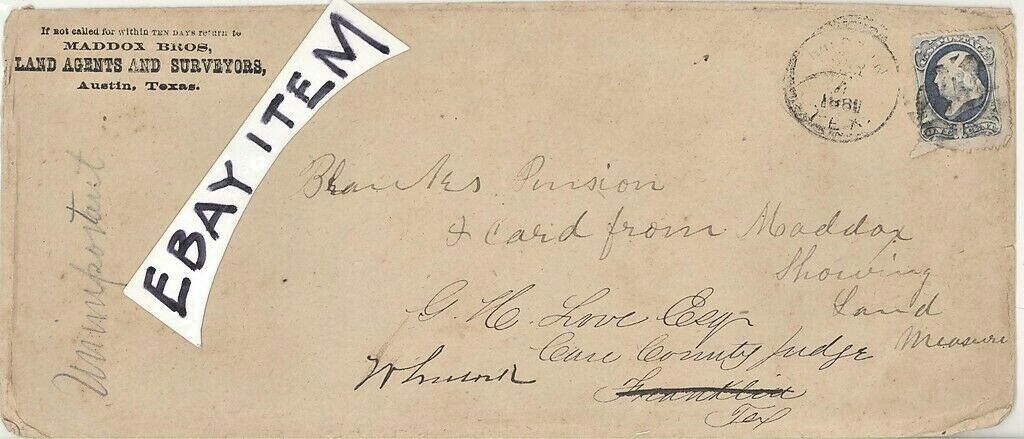 If not called for within TEN DAYS return to
MADDOX BROS,
LAND AGENTS AND SURVEYORS,
Austin, Texas.
EBAY ITEM
1881
TEX.
Unimportant
Pension
& card from Maddox
Showing
Land
Measure
G. H. Love Esqr
Care County Judge
Franklin
Tex